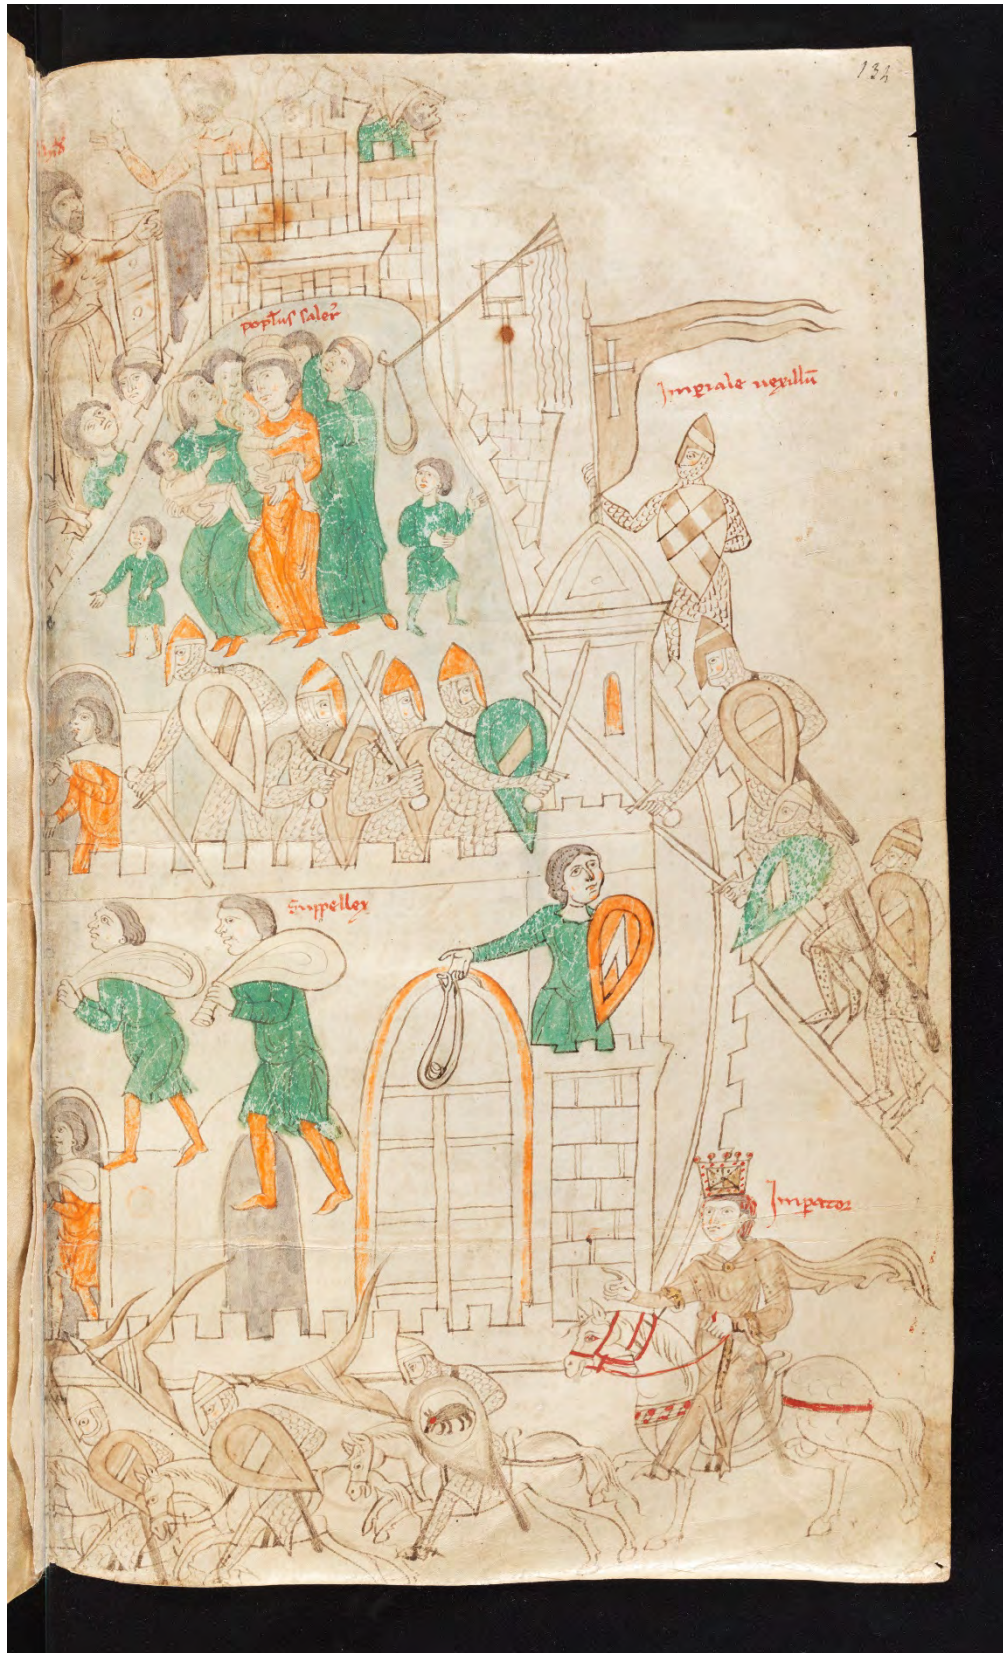 132
pop̃lus saler̃
Imp̲iale uexillũ
Suppellex
Imp̲ator